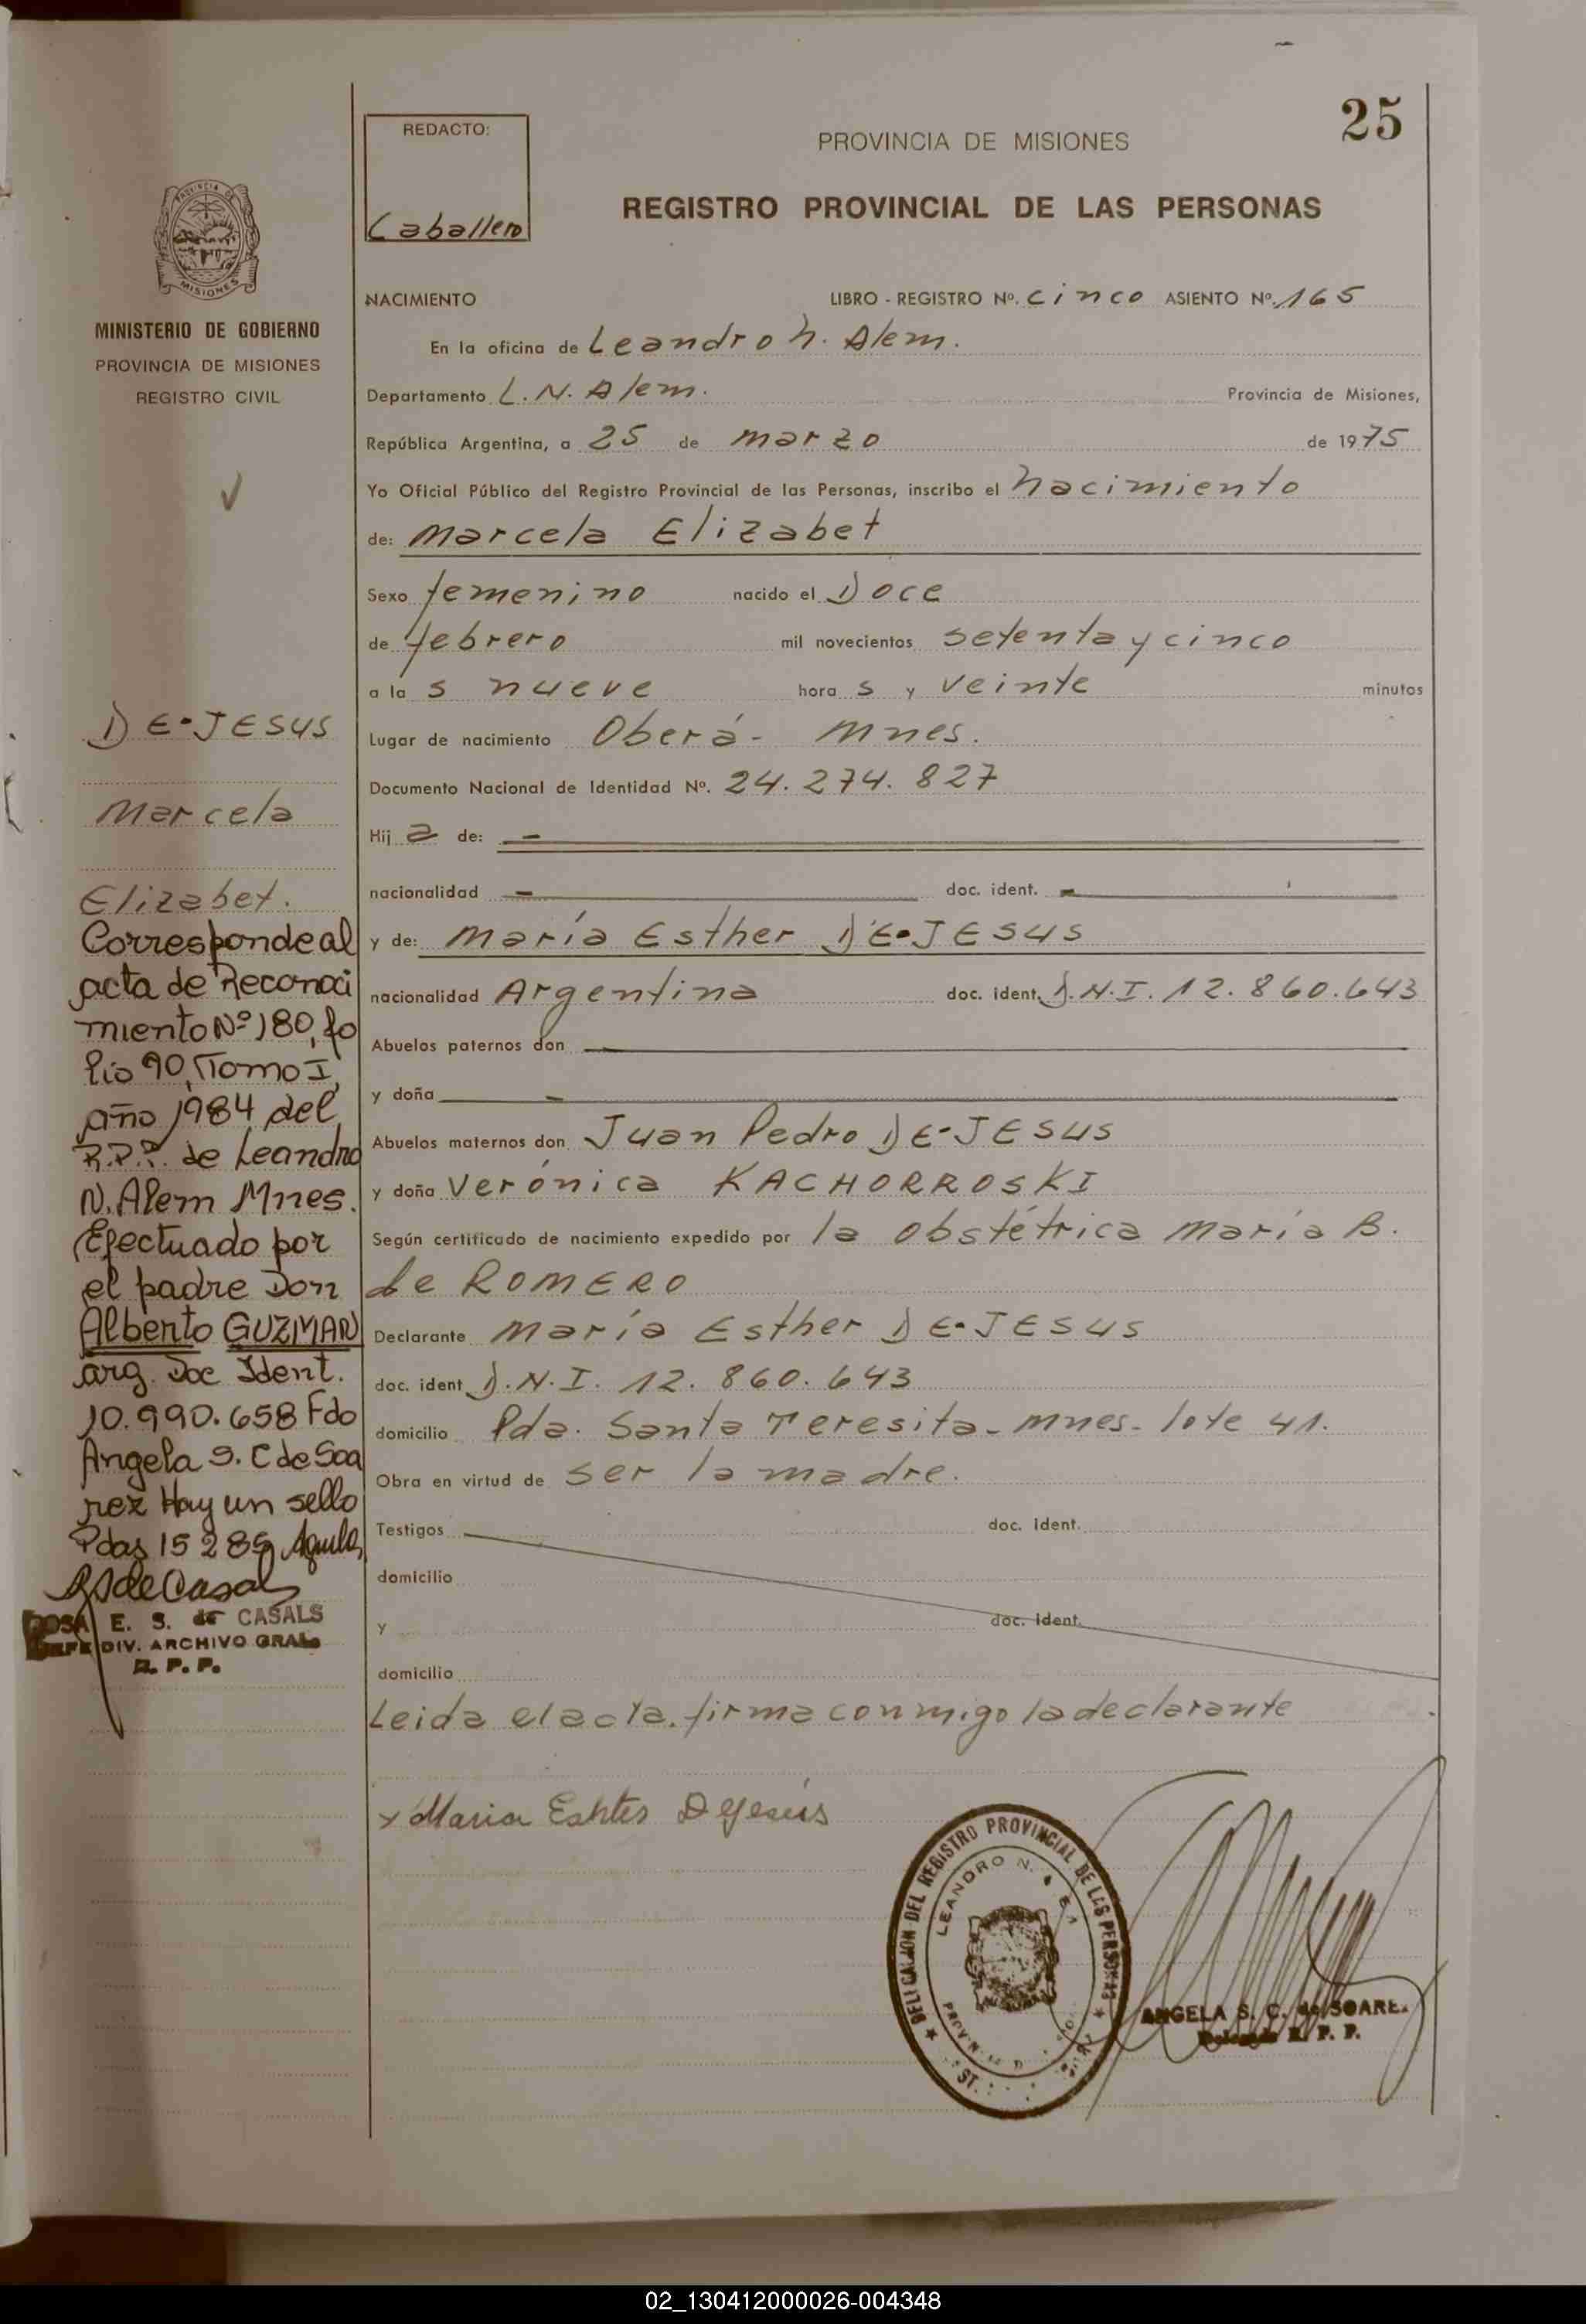 25
REDACTO:
Caballero
PROVINCIA DE MISIONES
REGISTRO PROVINCIAL DE LAS PERSONAS
PROVINCIA DE
MISIONES
MINISTERIO DE GOBIERNO
PROVINCIA DE MISIONES
REGISTRO CIVIL
NACIMIENTO LIBRO - REGISTRO Nº. cinco ASIENTO Nº. 165
En la oficina de Leandro N. Alem.
Departamento L. N. Alem. Provincia de Misiones,
República Argentina, a 25 de marzo de 1975
Yo Oficial Público del Registro Provincial de las Personas, inscribo el nacimiento
de: Marcela Elizabet
Sexo femenino nacido el Doce
de febrero mil novecientos setenta y cinco
a la s nueve hora s y veinte minutos
Lugar de nacimiento Oberá - Mnes.
Documento Nacional de Identidad Nº. 24.274.827
Hij a de: -
nacionalidad - doc. ident. -
y de: María Esther DE-JESUS
nacionalidad Argentina doc. ident. D.N.I. 12.860.643
Abuelos paternos don
y doña -
Abuelos maternos don Juan Pedro DE-JESUS
y doña Verónica KACHORROSKI
Según certificado de nacimiento expedido por la obstétrica María B.
de ROMERO
Declarante María Esther DE-JESUS
doc. ident D.N.I. 12.860.643
domicilio Pda. Santa Teresita - Mnes - lote 41.
Obra en virtud de ser la madre.
Testigos doc. ident.
domicilio
y doc. ident.
domicilio
Leida el acta. firma conmigo la declarante
x Maria Eshter Dejesús
DE-JESUS
Marcela
Elizabet.
Corresponde al
acta de Reconoci
miento Nº 180, fo
lio 90, Tomo I,
año 1984 del
R.P.P. de Leandro
N. Alem Mnes.
Efectuado por
el padre Don
Alberto GUZMAN
arg. Doc Ident.
10.990.658 Fdo
Angela S. C de Soa
rez Hay un sello
Pdas 15 2 85
ROSA E. S. de CASALS
JEFE DIV. ARCHIVO GRAL.
R. P. P.
DELEGACION DEL REGISTRO PROVINCIAL DE LAS PERSONAS
LEANDRO N.
ANGELA S. C. de SOAREZ
Delegada R. P. P.
02_130412000026-004348